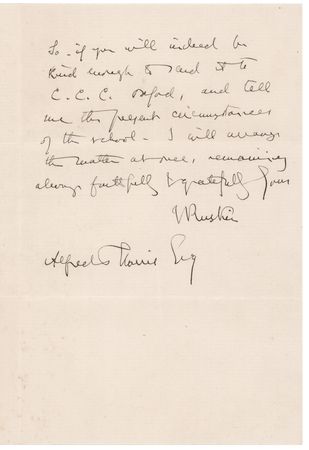 So - if you will indeed be
kind enough to send it to
C. C. C. Oxford, and tell
me the present circumstances
of the school - I will arrange
the matter at once, remaining
always faithfully & gratefully Yours
J Ruskin
Alfred Harris Esq